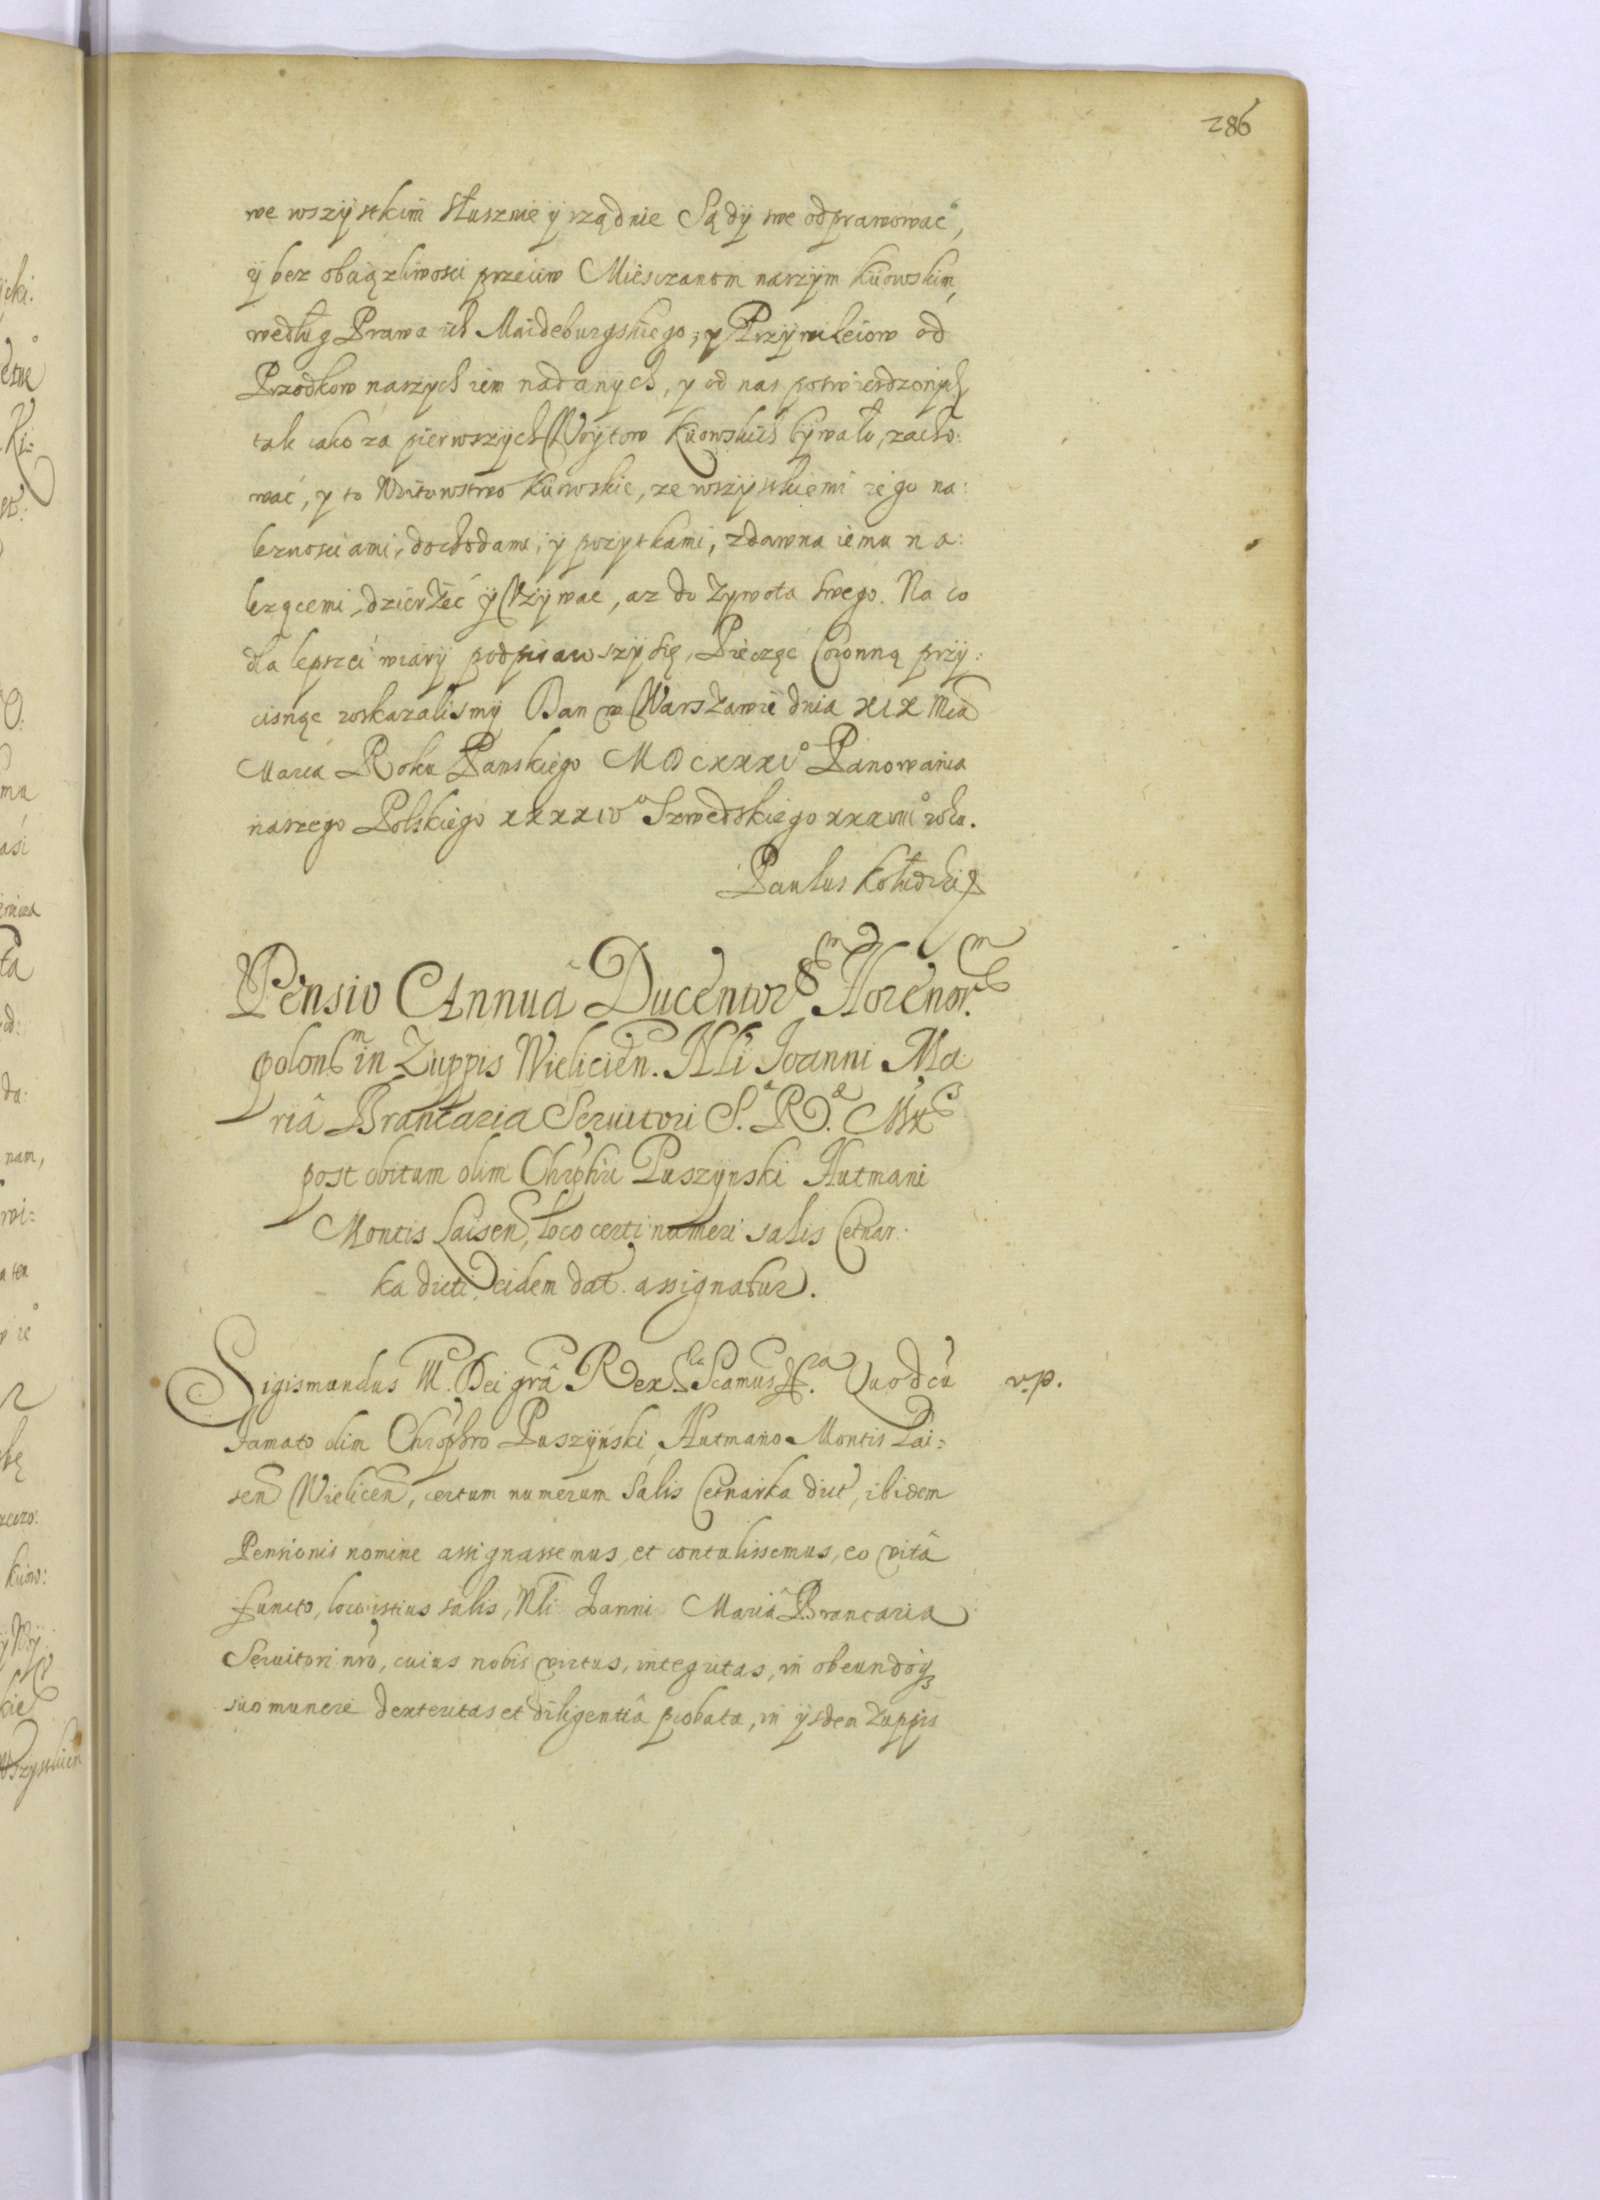 286
we wszÿstkim słusznie ÿ rządnie Sądÿ swe odprawować,
ÿ bez obciązliwosci przeciw Miesczanom naszÿm Kiiowskim,
według Prawa ich Maideburgskiego, y Przÿwileiow od
Przodkow naszych iem nadanych, y od nas potwierdzonych
tak iako za pierwszych Woÿtow Kiiowskich bÿwało, zacho:
wać, y to Woitowstwo Kiiowskie, ze wszÿstkiemi iego na:
leznosciami, dochodami, ÿ pozytkami, zdawna iemu na:
lezącemi, dzierżeć ÿ Vzÿwac, az do Zywota swego. Na co
dla lepszei wiarÿ podpisawszÿ się, Pieczęc Coronną przÿ:
cisnąc roskazalismÿ Dan w Warszawie dnia XIX Mca
Marca Roku Panskiego MDCXXXI° Panowania
naszego Polskiego XXXXIV° Szwedskiego XXXVIII° roku.
Paulus Kołudzki
Pensio Annua Ducentor͠m Florenor͠m
polon͠m in Zuppis Wielicien. Nli Ioanni Ma
riâ Brancaria Seruitori S. R. Mtis
post obitum olim Chrphri Puszÿnski Hutmani
Montis Laisen, loco certi numeri salis Cetnar:
ka dicti, eidem dat. assignatur.
Sigismundus III. Dei grâ Rex Pol. Scamus &. Quod cũ v.p.
Famato olim Chrophro Puszÿnski, Hutmano Montis Lai:
sen Wielicen, certum numerum Salis Cetnarka dict, ibidem
Pensionis nomine assignassemus, et contulissemus, eo vitâ
functo, loco istius salis, Nli Ioanni Mariâ Brancaria
Seruitori nro, cuius nobis virtus, integritas, in obeundoq;
suo munere dexteritas et diligentia probata, in ÿsdem Zuppis